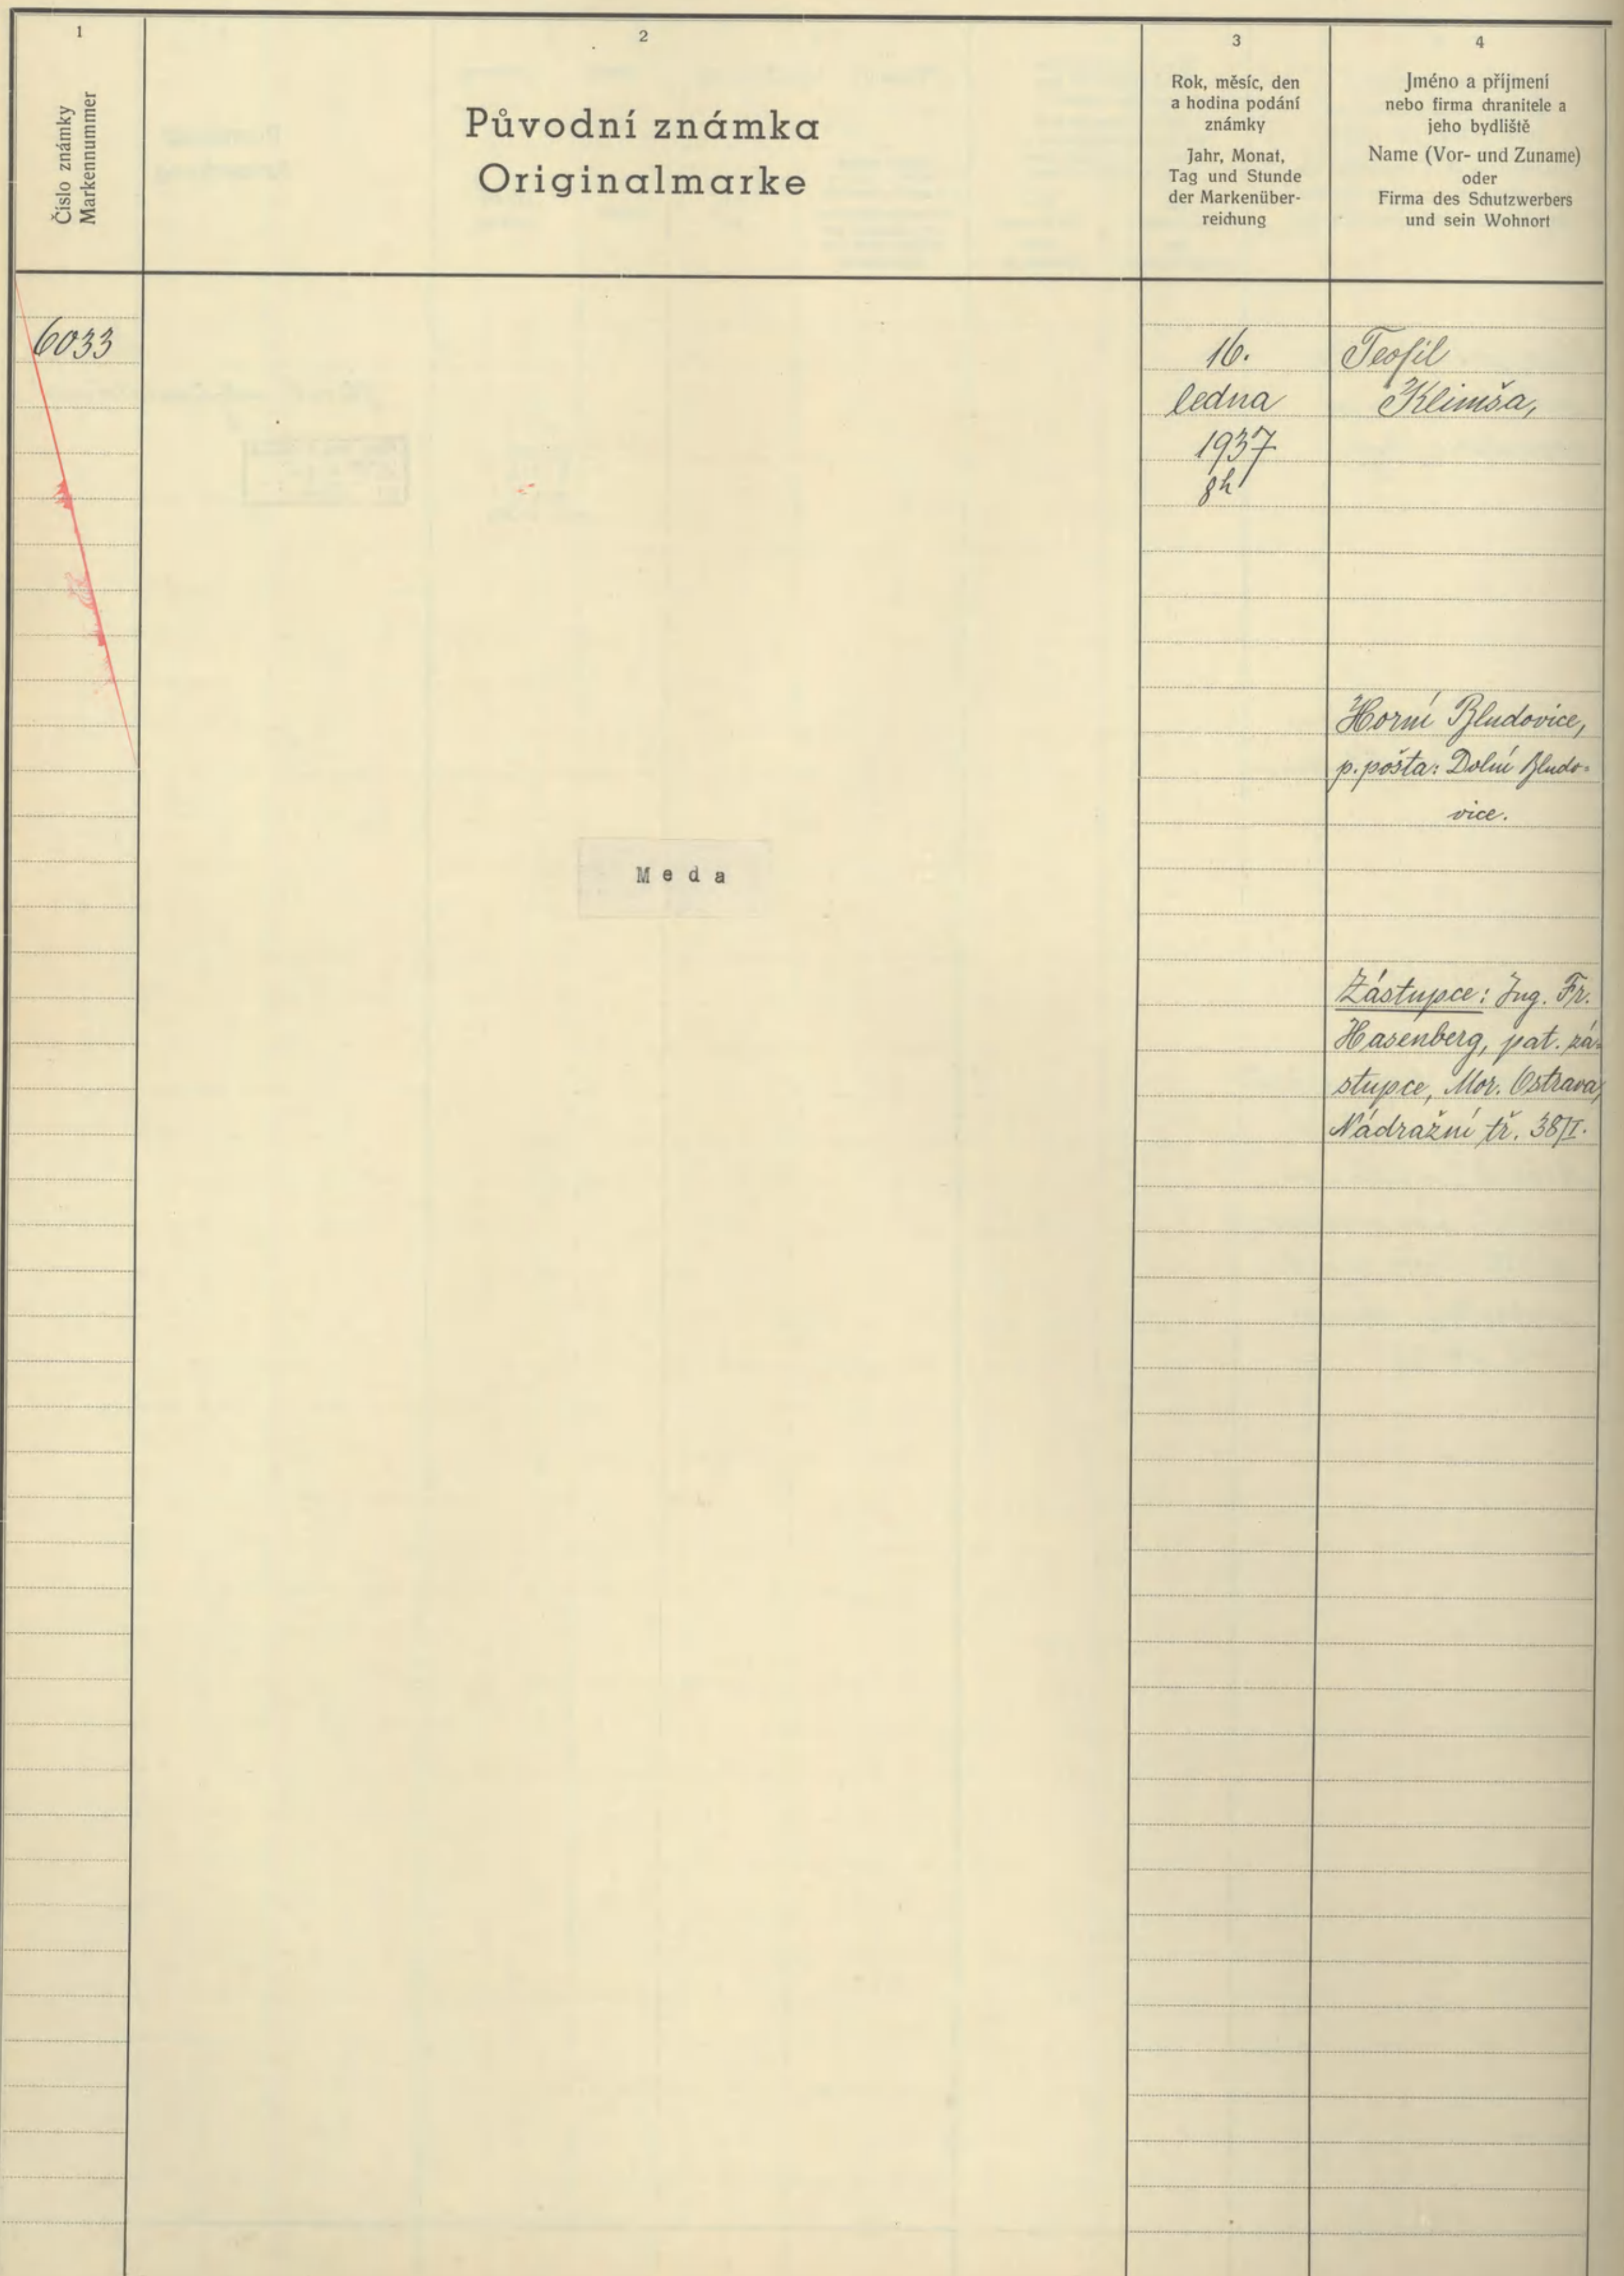 1
Číslo známky
Markennummer
2
Původní známka
Originalmarke
3
Rok, měsíc, den
a hodina podání
známky
Jahr, Monat,
Tag und Stunde
der Markenüber-
reichung
4
Jméno a příjmení
nebo firma chranitele a
jeho bydliště
Name (Vor- und Zuname)
oder
Firma des Schutzwerbers
und sein Wohnort
6033
Meda
16.
ledna
1937
8h
Teofil
Klimša,
Horní Bludovice,
p. pošta: Dolní Bludo-
vice.
Zástupce: Ing. Fr.
Hasenberg, pat. zá-
stupce, Mor. Ostrava,
Nádražní tř. 38/I.